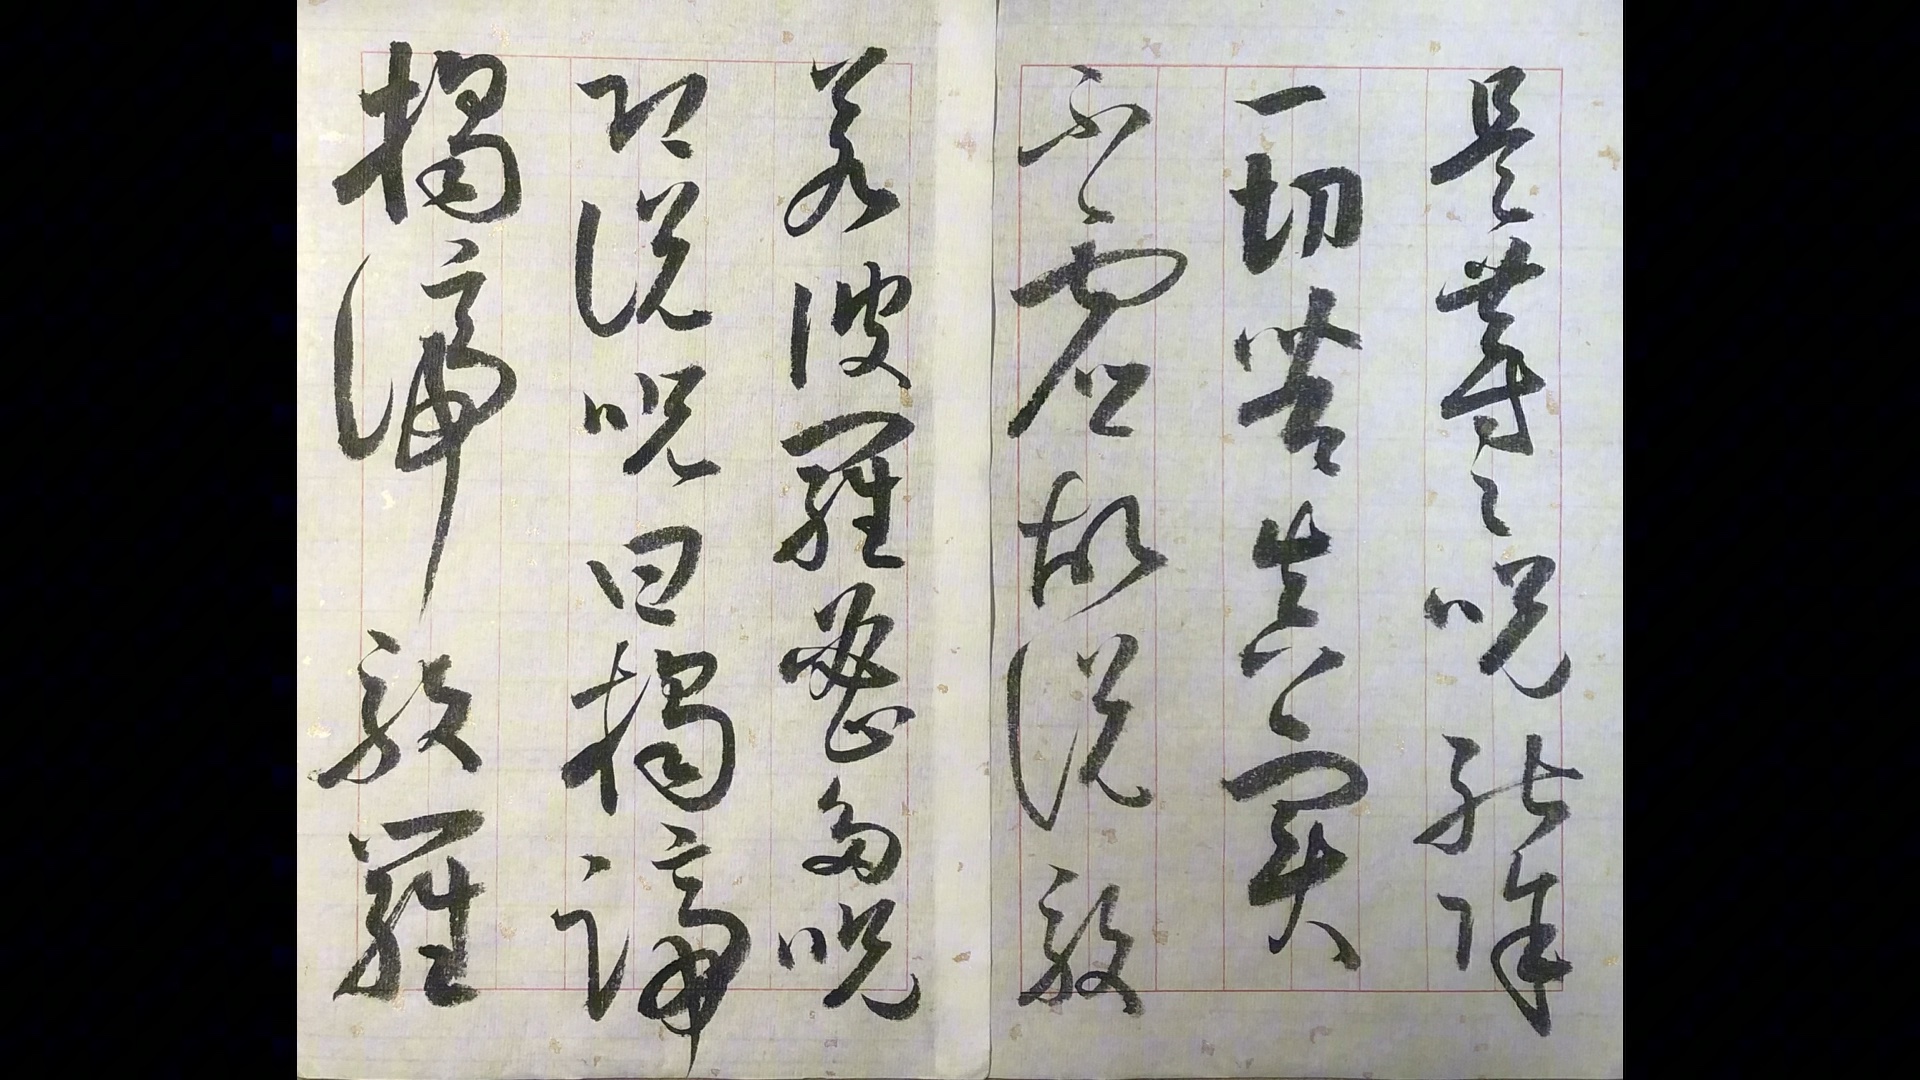 是等々呪能除
一切苦真實
不虛故說般
若波羅蜜多呪
即說呪曰揭諦
揭諦般羅